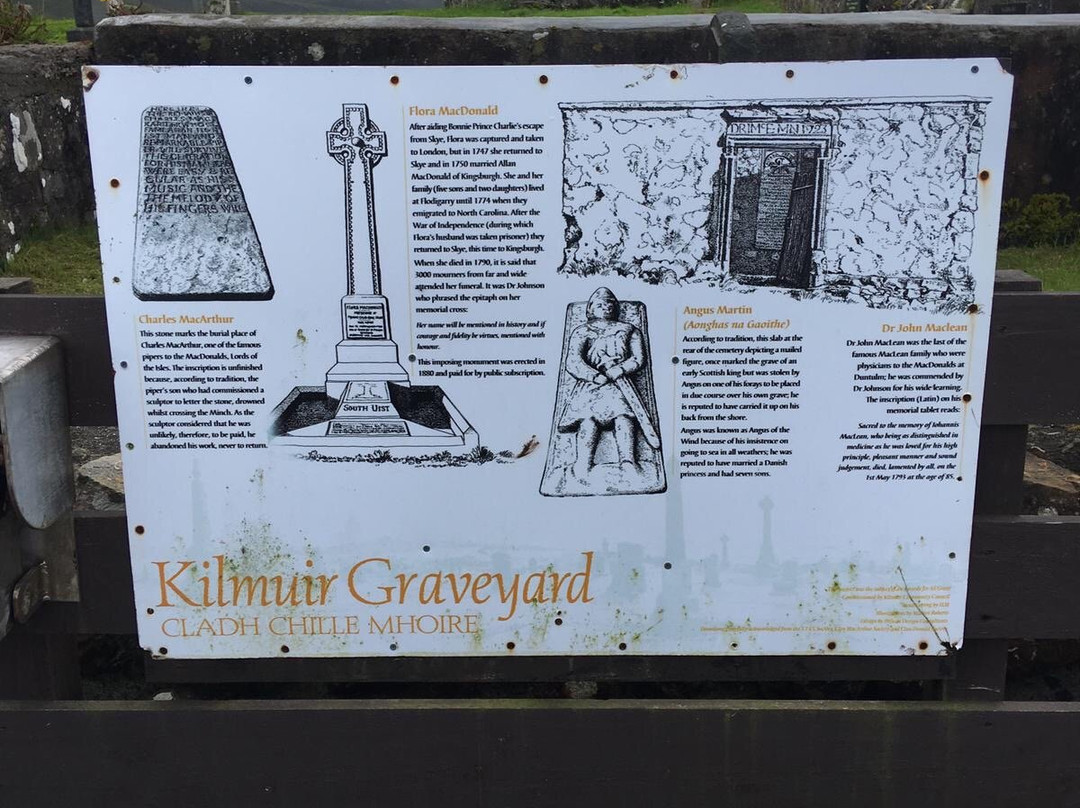 MUSIC AND THE
THE MELODY OF
HIS FINGERS WILL
Charles MacArthur
This stone marks the burial place of
Charles MacArthur, one of the famous
pipers to the MacDonalds, Lords of
the Isles. The inscription is unfinished
because, according to tradition, the
piper's son who had commissioned a
sculptor to letter the stone, drowned
whilst crossing the Minch. As the
sculptor considered that he was
unlikely, therefore, to be paid, he
abandoned his work, never to return.
SOUTH UIST
Flora MacDonald
After aiding Bonnie Prince Charlie's escape
from Skye, Flora was captured and taken
to London, but in 1747 she returned to
Skye and in 1750 married Allan
MacDonald of Kingsburgh. She and her
family (five sons and two daughters) lived
at Flodigarry until 1774 when they
emigrated to North Carolina. After the
War of Independence (during which
Flora's husband was taken prisoner) they
returned to Skye, this time to Kingsburgh.
When she died in 1790, it is said that
3000 mourners from far and wide
attended her funeral. It was Dr Johnson
who phrased the epitaph on her
memorial cross:
Her name will be mentioned in history and if
courage and fidelity be virtues, mentioned with
honour.
This imposing monument was erected in
1880 and paid for by public subscription.
Angus Martin
(Aonghas na Gaoithe)
According to tradition, this slab at the
rear of the cemetery depicting a mailed
figure, once marked the grave of an
early Scottish king but was stolen by
Angus on one of his forays to be placed
in due course over his own grave; he
is reputed to have carried it up on his
back from the shore.
Angus was known as Angus of the
Wind because of his insistence on
going to sea in all weathers; he was
reputed to have married a Danish
princess and had seven sons.
Dr John Maclean
Dr John MacLean was the last of the
famous MacLean family who were
physicians to the MacDonalds at
Duntulm; he was commended by
Dr Johnson for his wide learning.
The inscription (Latin) on his
memorial tablet reads:
Sacred to the memory of Iohannis
MacLean, who being as distinguished in
medicine as he was loved for his high
principle, pleasant manner and sound
judgement, died, lamented by all, on the
1st May 1793 at the age of 85.
Kilmuir Graveyard
CLADH CHILLE MHOIRE